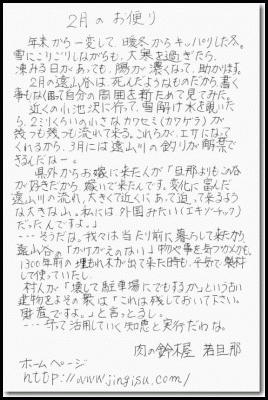 2月のお便り
年末から一変して、暖冬からキッパリした冬。
雪にこりごりしながらも、大寒を過ぎたら、
凍みる日があっても、陽が濃くなって、助かります。
2月の遠山谷は、死んだようなものだから、書く
事もな、自分の周囲を新ためて見てみた。
近くの小池沢に行って、雪解け水を覗いた
ら、2ミリくらいの小さなカワゼミ(カワゲラ)が
幾つも幾つも流れて来る。これらが、エサになって
くれるから、3月には遠山川の釣りが解禁で
きるんだなー。
県外からお嫁に来た人が「旦那よりもこの谷
が好きだから、嫁いで来たんです。変化に富んだ
遠山川の流れ、大きくて近くにあって迫って来るよう
な大きな山。私には外国みたい(エキゾチック)
だったんですよ。」
…そうだな。我々は当たり前に暮らして来たから
遠山谷の「かけがえのない」物や事を与フカメも、
1300年前の埋もれ木が出て来た時も、平気で製材
して使っていたし、
村人が「壊して駐車場にでもするか」という古い
建物をよその衆は「これは残しておいて下さい。
重宝ですよ。」と言っとうし。
…守って活用していく知恵と実行だわな。
肉の鈴木屋 若旦那
ホームページ
http://www.jingisu.com/